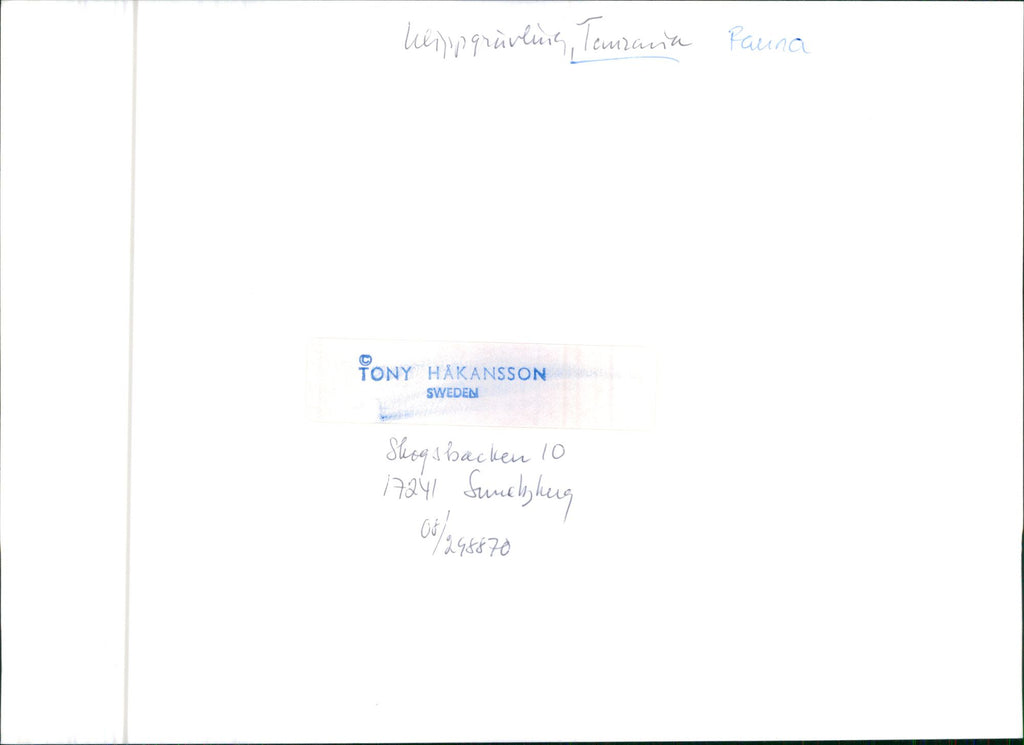 Klippgrävling, Tanzania Fauna
©
TONY HÅKANSSON
SWEDEN
Skogsbacken 10
17241 Sundbyberg
08/298870